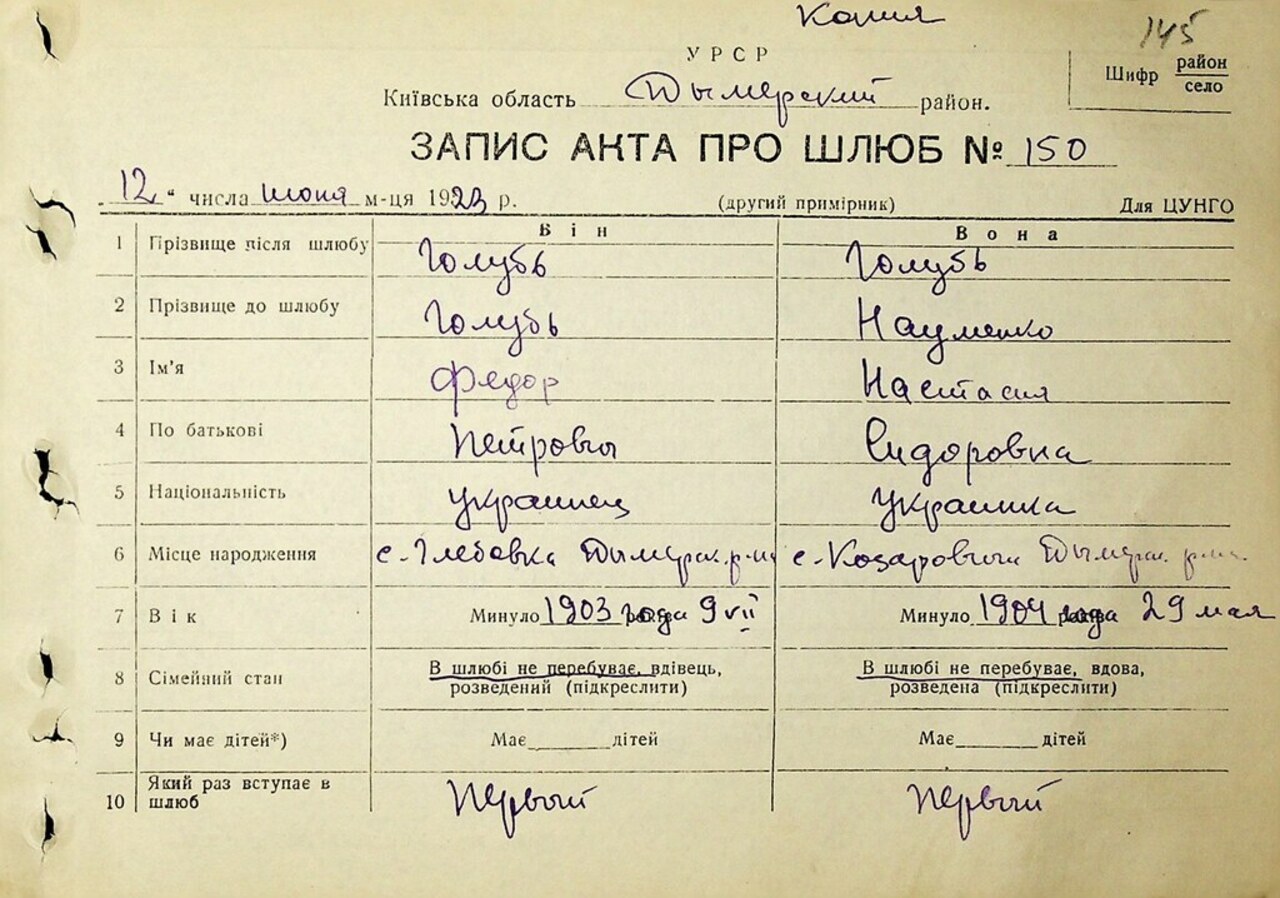 Копия
145
УРСР
Шифр район село
Київська область Дымерский район.
ЗАПИС АКТА ПРО ШЛЮБ № 150
"12" числа июня м-ця 1923 р. (другий примірник) Для ЦУНГО
Він Вона
1 Прізвище після шлюбу Голубь Голубь
2 Прізвище до шлюбу Голубь Науменко
3 Ім'я Федор Настасия
4 По батькові Петрович Сидоровна
5 Національність украинец украинка
6 Місце народження с. Глебовка Дымерск. р-на с. Козаровичи Дымерск. р-на.
7 Вік Минуло 1903 года 9 VII Минуло 1904 года 29 мая
8 Сімейний стан В шлюбі не перебуває, вдівець, розведений (підкреслити) В шлюбі не перебуває, вдова, розведена (підкреслити)
9 Чи має дітей*) Має дітей Має дітей
10 Який раз вступає в шлюб первый первый